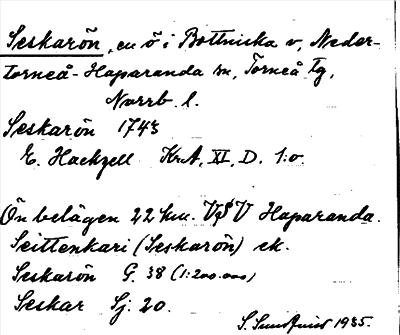 Seskarön, en ö i Bottniska v, Neder-
torneå-Haparanda sn, Torneå tg,
Norrb. l.
Seskarön 1743
E. Hackzell KrA, XI, D. 1:o.
Ön belägen 22 km. V S V Haparanda.
Seittenkari (Seskarön) ek.
Seskarön G. 38 (1:200.000)
Seskar Sj. 20.
S. 1935.